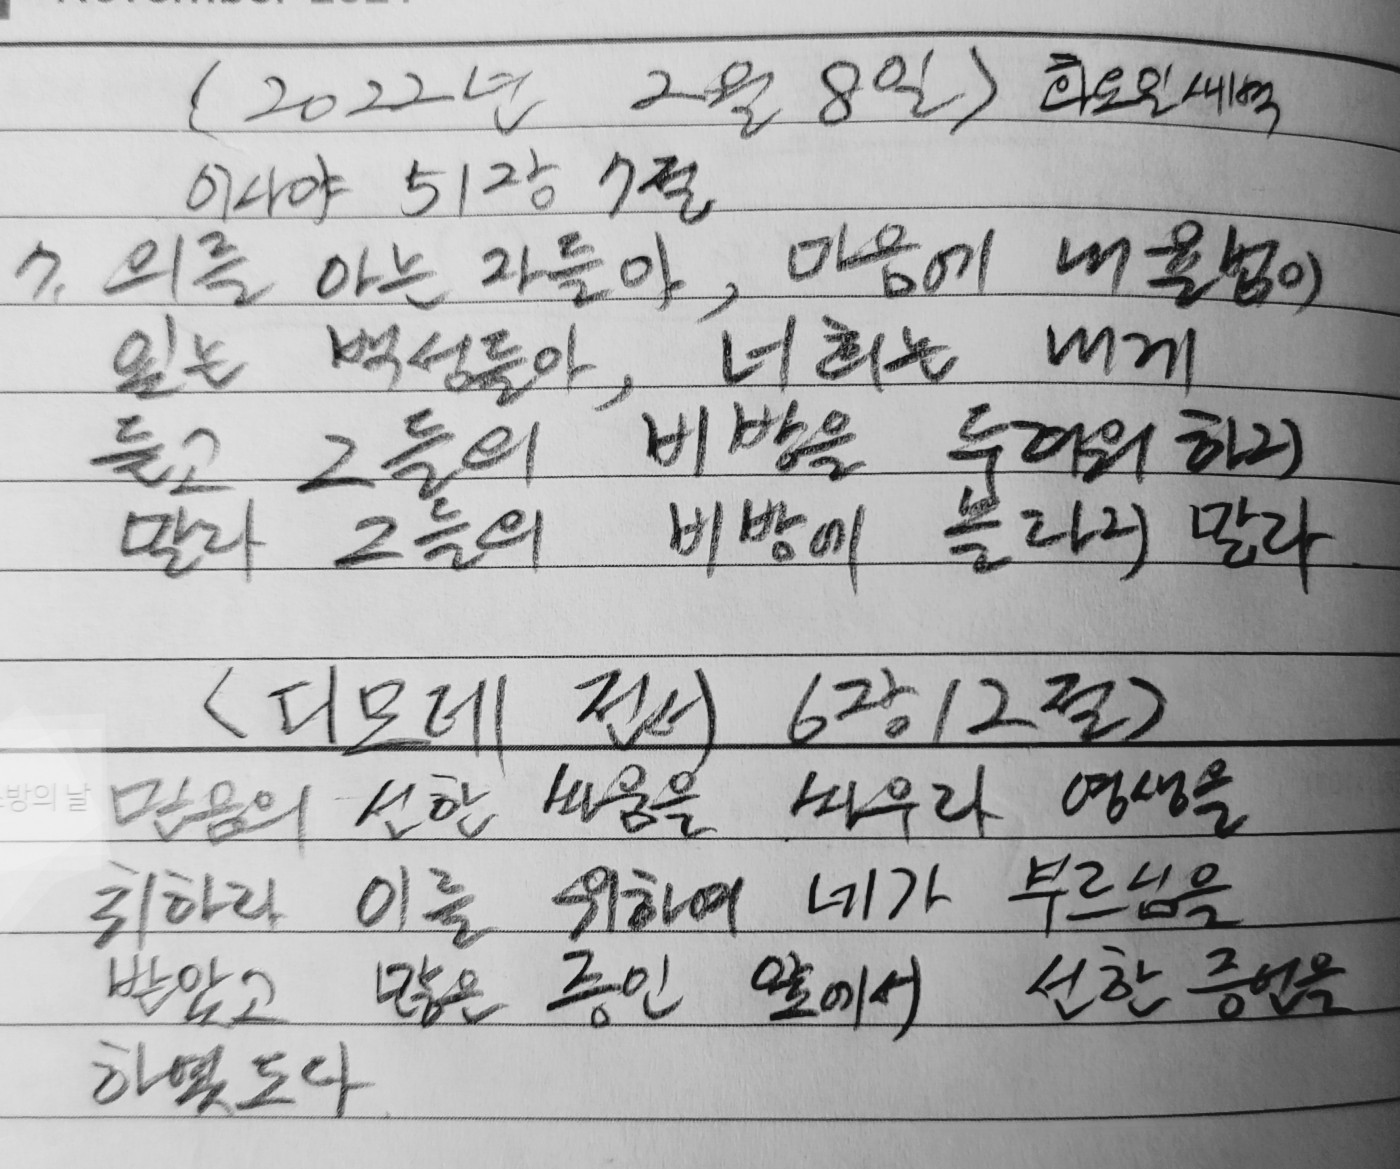 (2022년 2월 8일) 화요일새벽
이사야 51장 7절
7. 의를 아는 자들아, 마음에 내 율법이
있는 백성들아, 너희는 내게
듣고 그들의 비방을 두려워 하지
말라 그들의 비방에 놀라지 말라
<디모데 전서 6장12절>
방의 날
믿음의 선한 싸움을 싸우라 영생을
취하라 이를 위하여 네가 부르심을
받았고 많은 증인 앞에서 선한 증언을
하였도다